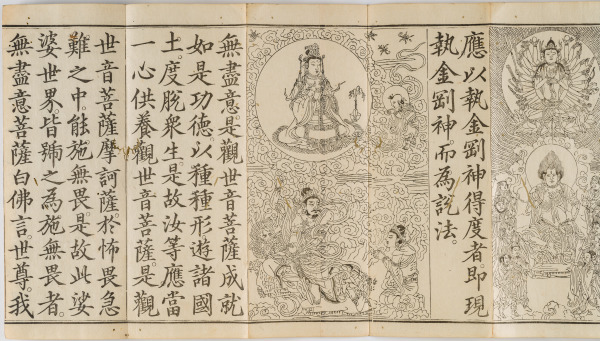 應以執金剛神得度者即現
執金剛神而為說法。
無盡意。是觀世音菩薩成就
如是功德。以種種形。遊諸國
土。度脫衆生。是故汝等。應當
一心供養觀世音菩薩。是觀
世音菩薩摩訶薩。於怖畏急
難之中。能施無畏。是故此娑
婆世界。皆號之為施無畏者。
無盡意菩薩白佛言。世尊。我